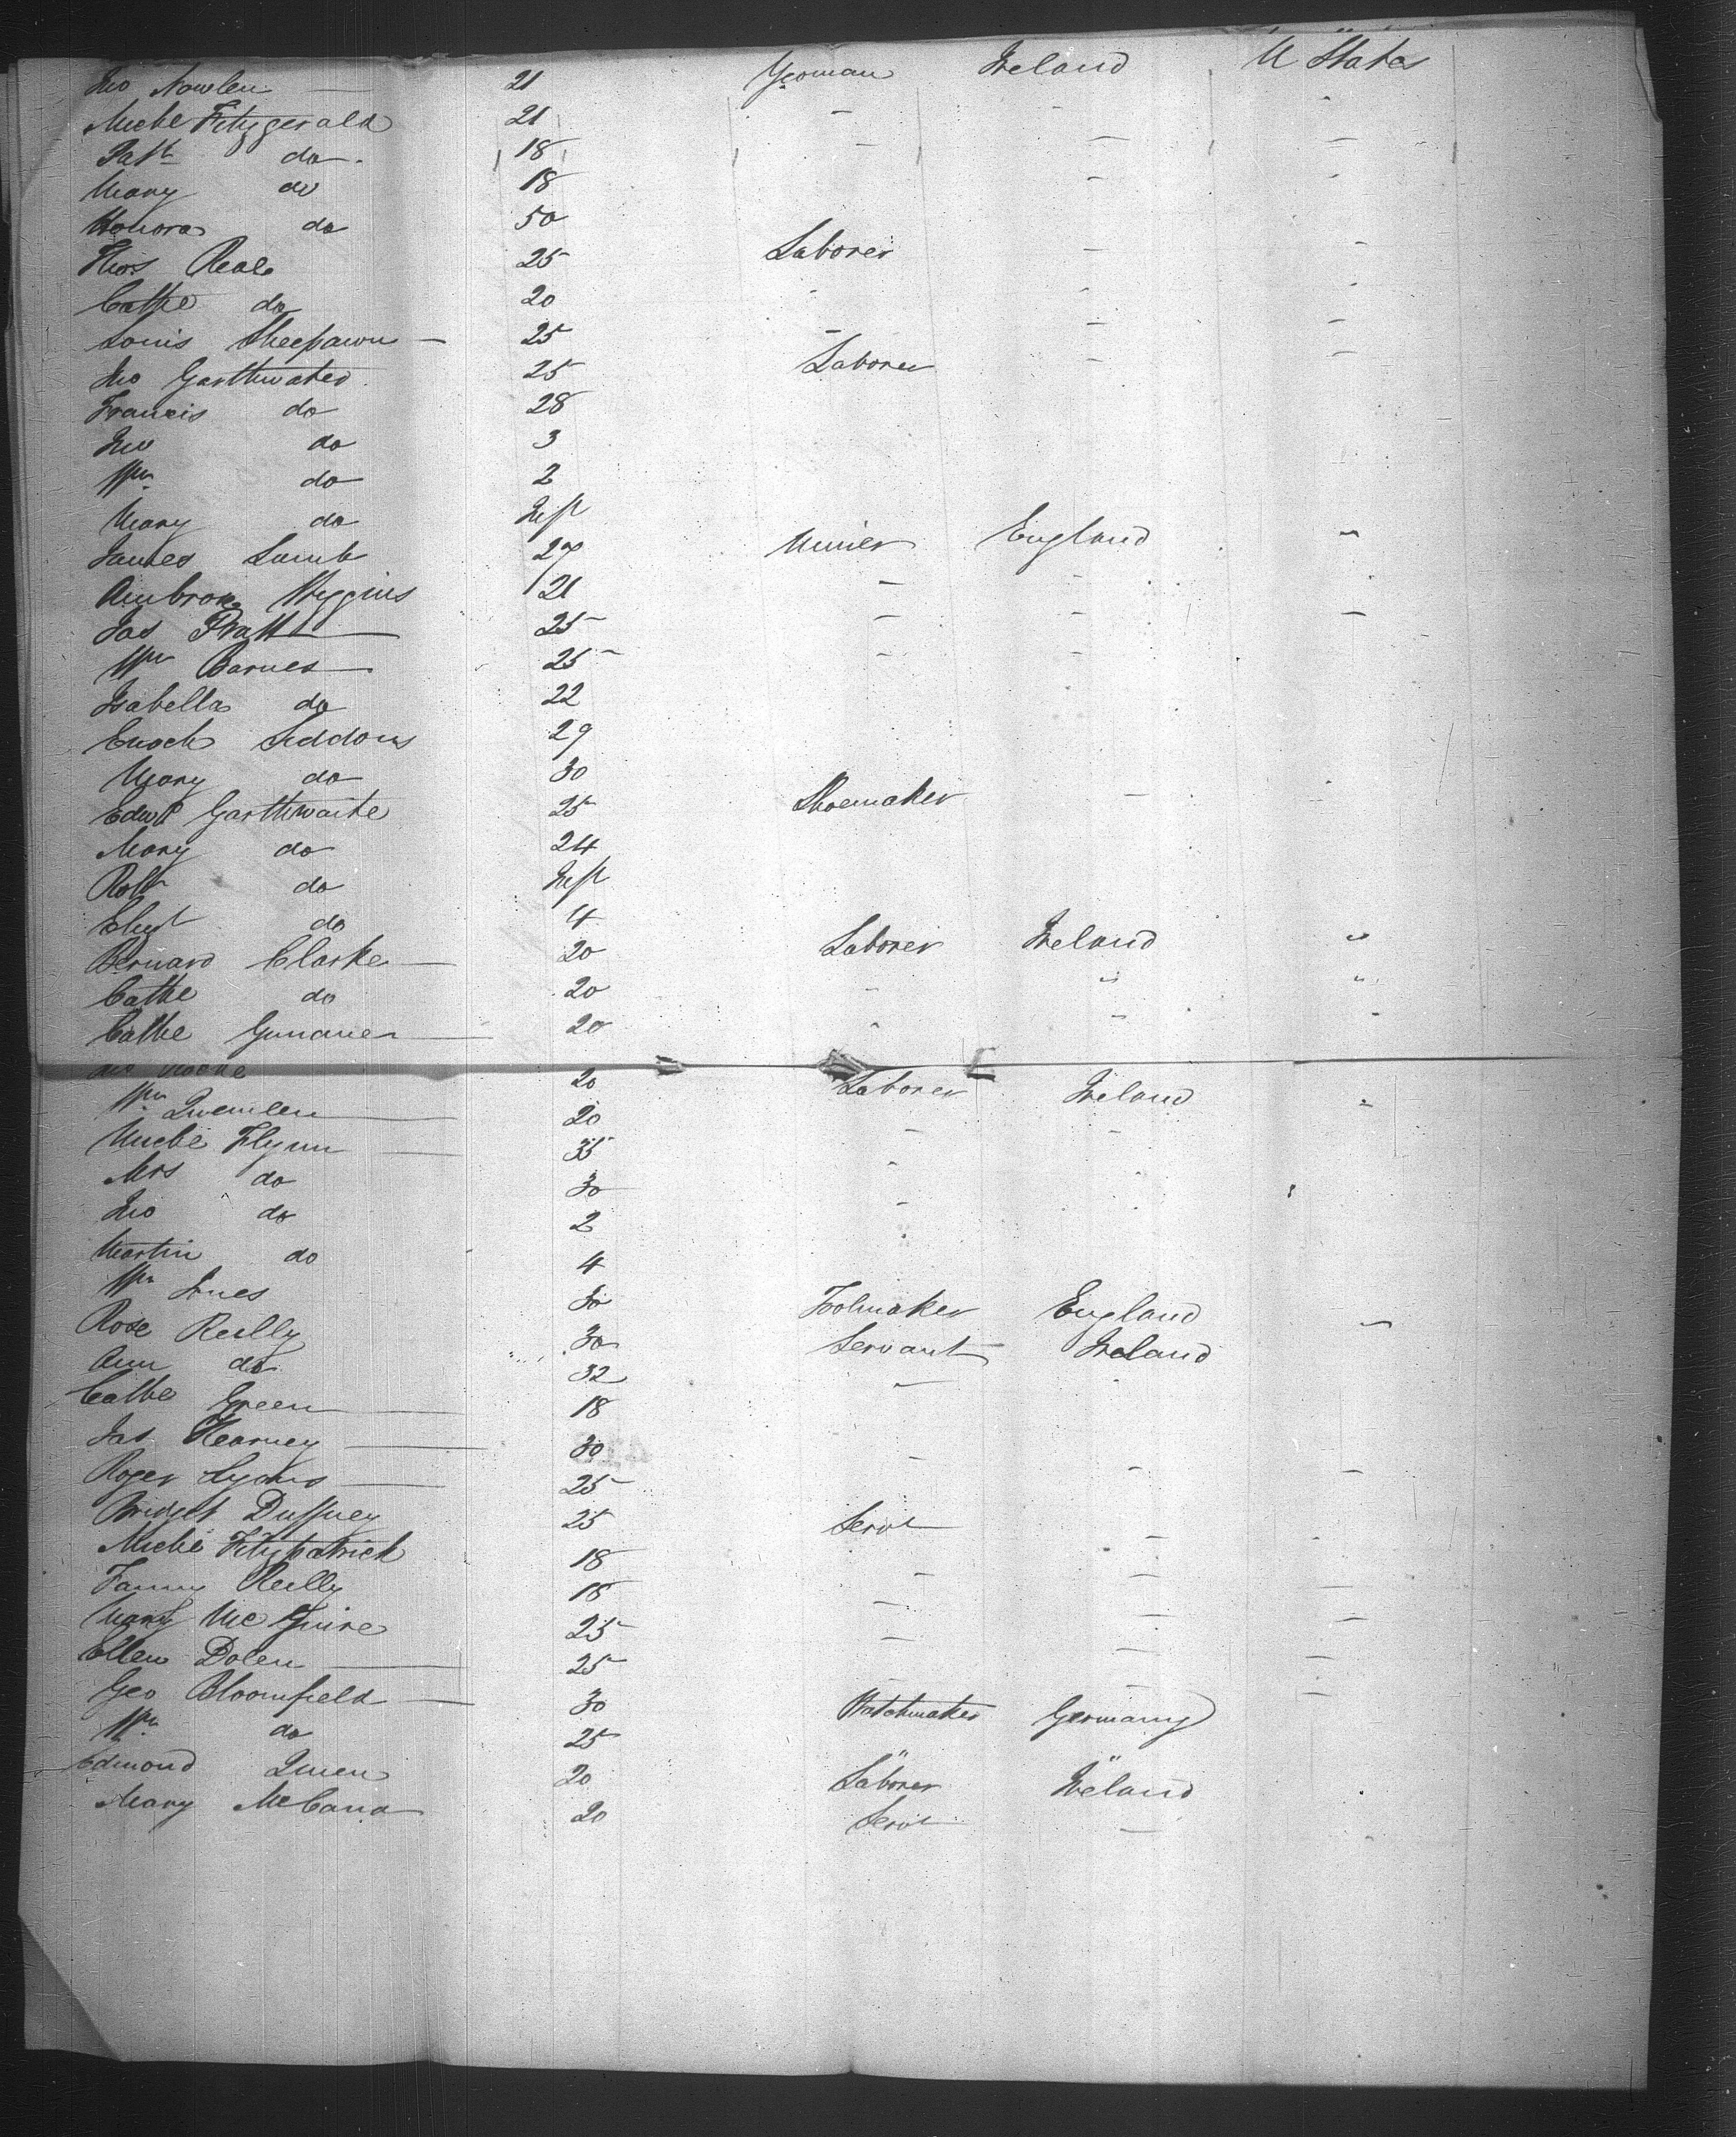 Jno Nowlen 21 Yeoman Ireland U States
Miche Fitzgerald 21 - - "
Patk do 18 - - -
Mary do 18 - "
Honora do 50
Thos Reale 25 Laborer - -
Cathe do 20 - " "
Louis 25 - - -
Jno Garthwated 25 Laborer - -
Francis do 28
Jno do 3
Wm do 2
Mary do Inft
James Lamb 27 Miner England "
Ambrose Higgins 21 - - "
Jas Pratt 25 - - -
Wm Barnes 25 - -
Isabella do 22
Enoch Siddons 29
Mary do 30
Edwd Garthwaite 25 Shoemaker - "
Mary do 24
Robt do Inft
Elizt do 4
Bernard Clarke 20 Laborer Ireland "
Cathe do 20 - " "
Cathe 20 " " "
Jno 20 Laborer Ireland "
Wm 20 - -
Miche Flynn 35 "
Mrs do 30 -
Jno do 2 "
Martin do 4
Wm Innes 30 Toolmaker England "
Rose Reilly 30 Servant Ireland
Ann do 32 -
Cathe Green 18
Jas Kearney 30 - - -
Roger Lyons 25
Bridget Duffney 25 Servt -
Miche Fitzpatrick 18 - - -
Fanny Reilly 18 - - -
Mary McGuire 25 - - -
Ellen Dolen 25 - - -
Geo Bloomfield 30 Watchmaker Germany
Wm do 25 " "
Edmond 20 Laborer Ireland
Mary McCana 20 Servt -